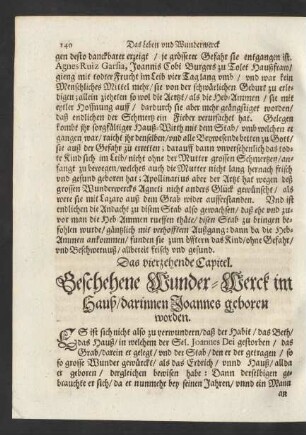 140 Das leben vnd Wunderwerck
gen desto danckbarer erzeigt / je grösserer Gefahr sie entgangen ist.
Agnes Ruiz Garsia, Joannis Cobi Burgers zu Tolet Haußfraw /
gieng mit todter Frucht im Leib vier Tag lang vmb / vnd war kein
Menschliches Mittel mehr / sie von der schwärlichen Geburt zu erle-
digen; allein zieheten so wol die Aertzt / als die Heb-Ammen / sie mit
eytler Hoffnung auff / dardurch aber sie mehr geängstiget worden /
daß endlichen der Schmertz ein Fieber verursachet hat. Gelegen
kombs ihr sorgfältiger Hauß-Wirth mit dem Stab / vmb welchen er
gangen war / raicht ihr denselben / vnd alle Beywesende betten zu Gott /
sie auß der Gefahr zu erretten; darauff dann vnversehenlich das tod-
te Kind sich im Leib / nicht ohne der Mutter grossen Schmertzen / an-
fangt zu bewegen / welches auch die Mutter nicht lang hernach frisch
vnd gesund geboren hat; Apollinarius aber der Artzt hat wegen deß
grossen Wunderwercks Agneti nicht anders Glück gewünscht / als
were sie mit Lazaro auß dem Grab wider aufferstanden. Vnd ist
endlichen die Andacht zu disem Stab also gewachsen / daß ehe vnd zu-
vor man die Heb-Ammen ruffen thäte / disen Stab zu bringen be-
fohlen wurde / gäntzlich mit verhofftem Außgang: dann da die Heb-
Ammen ankommen / funden sie zum öfftern das Kind / ohne Gefahr /
vnd Beschwernuß / allbereit frisch vnd gesund.
Das vierzehende Capitel.
Geschehene Wunder-Werck im
Hauß / darinnen Joannes geboren
worden.
ES ist sich nicht also zu verwundern / daß der Habit / das Beth /
das Hauß / in welchem der Sel. Joannes Dei gestorben / das
Grab / darein er gelegt / vnd der Stab / den er der getragen / so
so grosse Wunder gewürckt / als das Erdrich / vnnd Hauß / allda
er geboren / dergleichen bewisen habe: Dann derselbigen ge-
brauchte er sich / da er nunmehr bey seinen Jahren / vnnd ein Mann
an